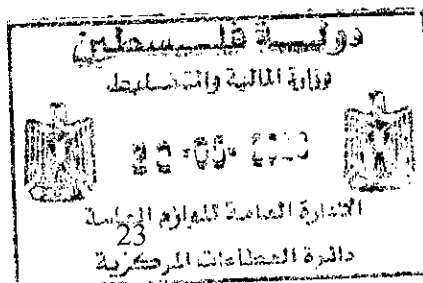 دولة فلسطين
وزارة المالية والتخطيط
الادارة العامة للوازم العامة
23
دائرة العطاءات المركزية